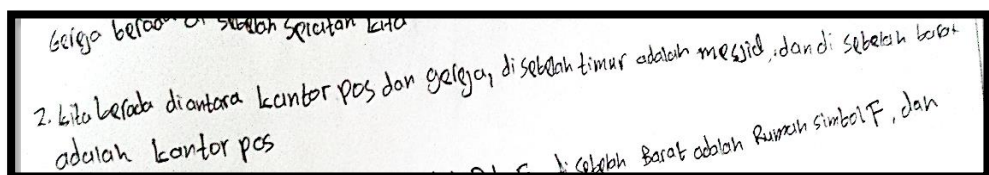 Gereja berada di sebelah
2. kita berada diantara kantor pos dan gereja, disebelah timur adalah mesjid, dan di sebelah barat
adalah kantor pos
disebelah Barat adalah Rumah simbol F, dan